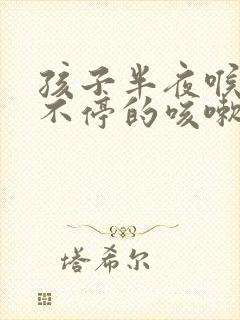 孩子半夜喉
不停的咳嗽
塔希尔